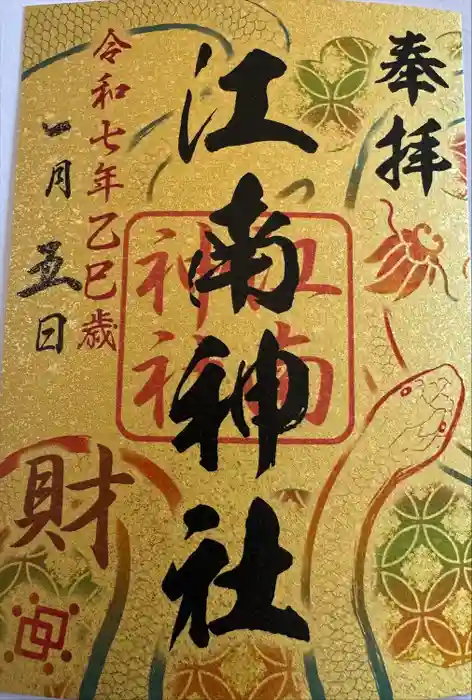 奉拝
江南神社
江南
神社
令和七年乙巳歳
一月五日
財